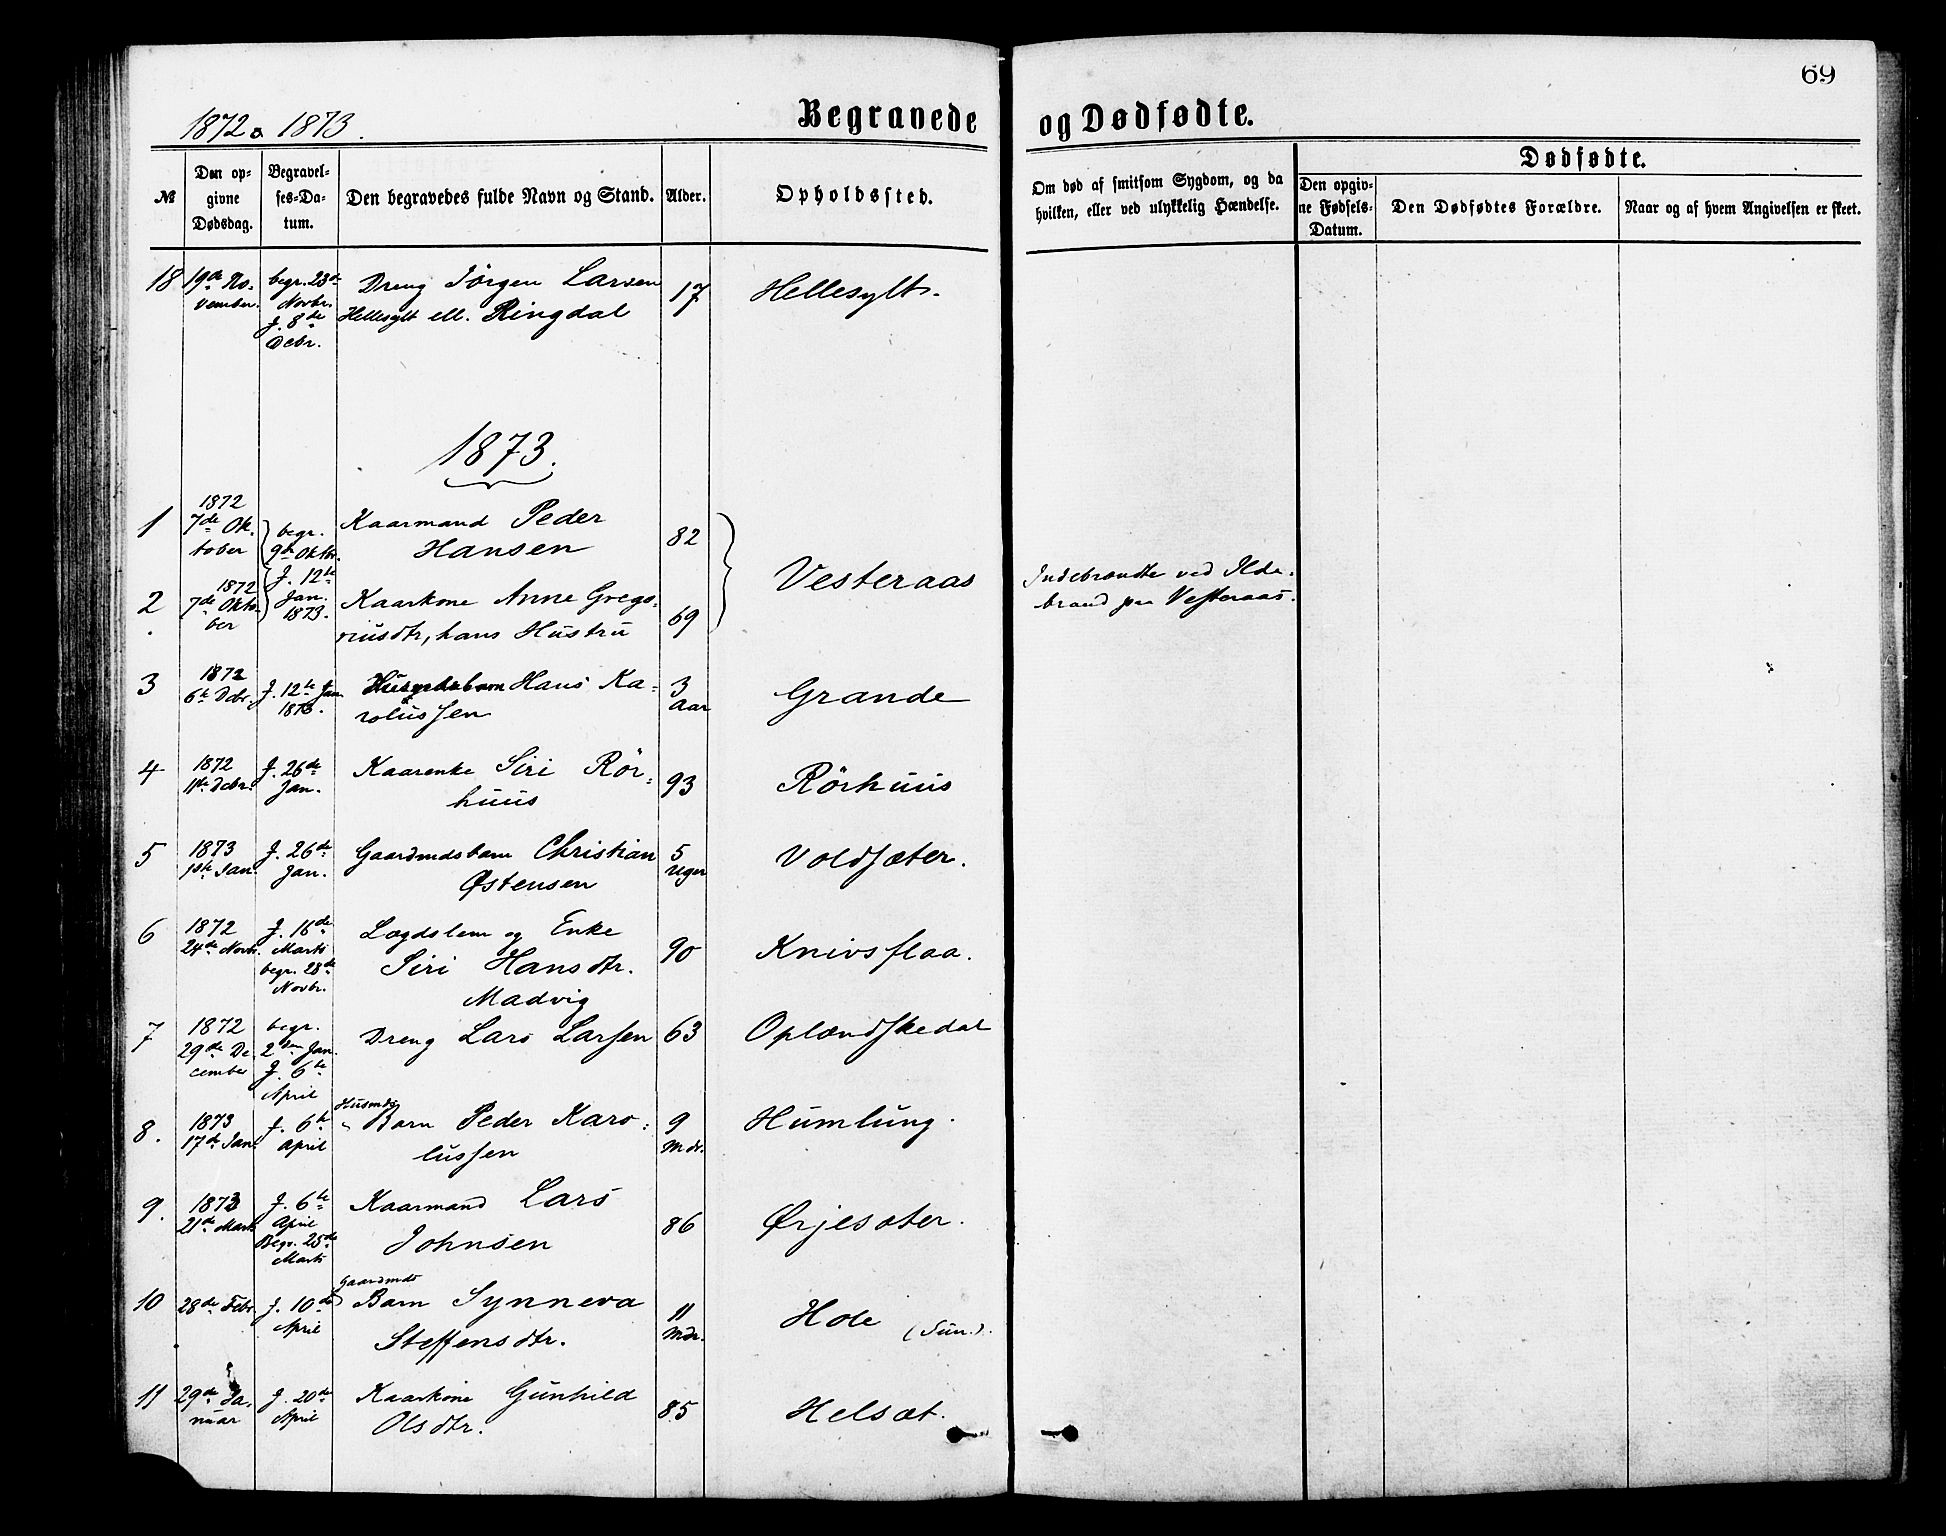 69
1872 o 1873.
Begravede og Dødfødte.
№
Den op-
givne
Dødsdag.
Begravel-
ses-Da-
tum.
Den begravedes fulde Navn og Stand.
Alder.
Opholdssted.
Om død af smitsom Sygdom, og da
hvilken, eller ved ulykkelig Hændelse.
Dødfødte.
Den opgiv-
ne Fødsels-
Datum.
Den Dødfødtes Forældre.
Naar og af hvem Angivelsen er skeet.
18
19de No-
vember.
begr. 23de
Novbr.
J. 8de
Debr.
Dreng Jörgen Larsen
Hellesylt ell. Ringdal
17
Hellesylt.
1873.
1
1872
7de Ok-
tober
begr.
9de Oktbr.
J. 12te
Jan.
1873.
Kaarmand Peder
Hansen
82
Vesteraas
Indebrændte ved Ilde-
brand paa Vesteraas.
2
1872
7de Okto-
ber
Kaarkone Anne Grego-
riusdtr, hans Hustru
69
3
1872
6te Debr.
J. 12te Jan
1873.
Hans Ka-
rolussen
3
Aar
Grande
4
1872
11te Debr.
J. 26de
Jan.
Kaarenke Siri Rör-
huus
93
Rörhuus
5
1873
1ste Jan.
J. 26de
Jan.
Gaardmdsbarn Christian
Østensen
5
Uger
Voldsæter.
6
1872
24de Novbr.
J. 16de
Marts
begr. 28de
Novbr.
Lægdslem og Enke
Siri Hansdtr.
Madvig
90
Knivsflaa.
7
1872
29de De-
cember
begr.
2den Jan.
J. 6te
April
Dreng Lars Larsen
63
Oplændskedal
8.
1873
17de Jan.
J. 6te
April
Husmds
Barn Peder Karo-
lussen
9
Mdr.
Humlung.
9.
1873
21de Marts
J. 6te
April
Begr. 25de
Marts
Kaarmand Lars
Johnsen
86
Ørjesæter.
10
28de Febr.
J. 10de
April
Gaardmds
Barn Synneva
Steffensdtr.
11
Mdr.
Hole (Sun.).
11
29de Ja-
nuar
J. 20de
April
Kaarkone Gunhild
Olsdtr.
85
Helsæt.